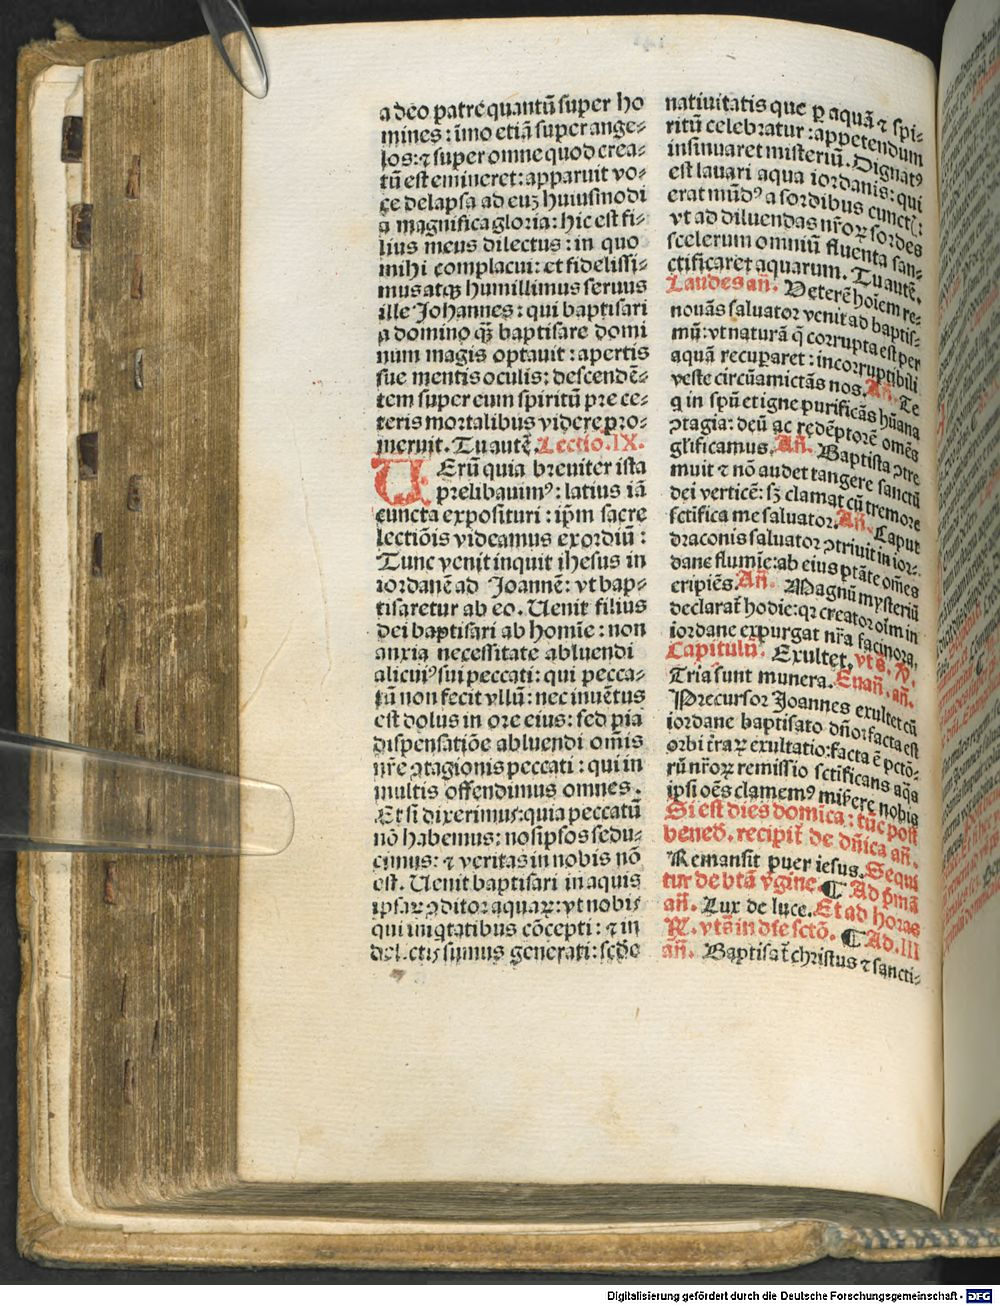 a deo patre quantū super ho
mines: īmo etiā super ange⸗
los: ⁊ super omne quod crea⸗
tū est emineret: apparuit vo⸗
ce delapsa ad euꝫ huiusmodi
a magnifica gloria: hic est fi⸗
lius meus dilectus: in quo
mihi complacui: et fidelissi⸗
mus atqꝫ humillimus seruus
ille Johannes: qui baptisari
a domino qꝫ̄ baptisare domi
num magis optauit: apertis
sue mentis oculis: descendē⸗
tem super eum spiritū pre ce⸗
teris mortalibus videre pro⸗
meruit. Tu autē. Lectio. IX.
UErū quia breuiter ista
prelibauimꝰ: latius iā
cuncta exposituri: ip̄m sacre
lectiōis videamus exordiū:
Tunc venit inquit ihesus in
iordanē ad Joannē: vt bap⸗
tisaretur ab eo. Uenit filius
dei baptisari ab homīe: non
anxia necessitate abluendi
alicuiꝰ sui peccati: qui pecca⸗
tū non fecit vllū: nec inuētus
est dolus in ore eius: sed pia
dispensatiōe abluendi om̄is
nr̄e ꝯtagionis peccati: qui in
multis offendimus omnes.
Et si dixerimus: quia peccatū
nō habemus: nosipsos sedu⸗
cimus: ⁊ veritas in nobis nō
est. Uenit baptisari in aquis
ipsaꝝ ꝯditor aquaꝝ: vt nobis
qui iniqtatibus cōcepti: ⁊ in
delictis sumus generati: scd̄e
natiuitatis que ꝑ aquā ⁊ spi⸗
ritū celebratur: appetendum
insinuaret misteriū. Dignatꝰ
est lauari aqua iordanis: qui
erat mūdꝰ a sordibus cunct.:
vt ad diluendas nr̄oꝝ sordes
scelerum omniū fluenta san⸗
ctificaret aquarum. Tu autē.
Laudes an̄. Veterē hoīem re⸗
nouās saluator venit ad baptis⸗
mū: vt naturā q̄ corrupta est per
aquā recuꝑaret: incorruptibili
veste circūamictās nos. An̄. Te
q in spū et igne purificās hūana
ꝯtagia: deū ac redēptorē omēs
glīficamus. An̄. Baptista ꝯtre
muit ⁊ nō audet tangere sanctū
dei verticē: sꝫ clamat cū tremore
sctīfica me saluator. An̄. Caput
draconis saluator ꝯtriuit in ior⸗
dane flumīe: ab eius ptāte om̄es
eripiēs. An̄. Magnū mysteriū
declarat̄ hodie: qꝛ creator oīm in
iordane expurgat nr̄a facinora.
Capitulū. Exultet, vt s. ꝟ.
Tria sunt munera. Euan̄. an̄.
Precursor Joannes exultet cū
iordane baptisato dn̄o: facta est
orbi tr̄aꝝ exultatio: facta ē pctō⸗
rū nr̄oꝝ remissio sctīficans aqā
ipsi oēs clamemꝰ mis̄ere nobis
Si est dies domica: tūc post
bened. recipit̄ de dn̄ica an̄.
Remansit puer iesus. Sequi
tur de btā vḡine. ¶ Ad p̄mā
an̄. Lux de luce. Et ad horas
℟. vt s̄ in die sctō. ¶ Ad. III
an̄. Baptisat̄ christus ⁊ sancti⸗
Digitalisierung gefördert durch die Deutsche Forschungsgemeinschaft - DFG